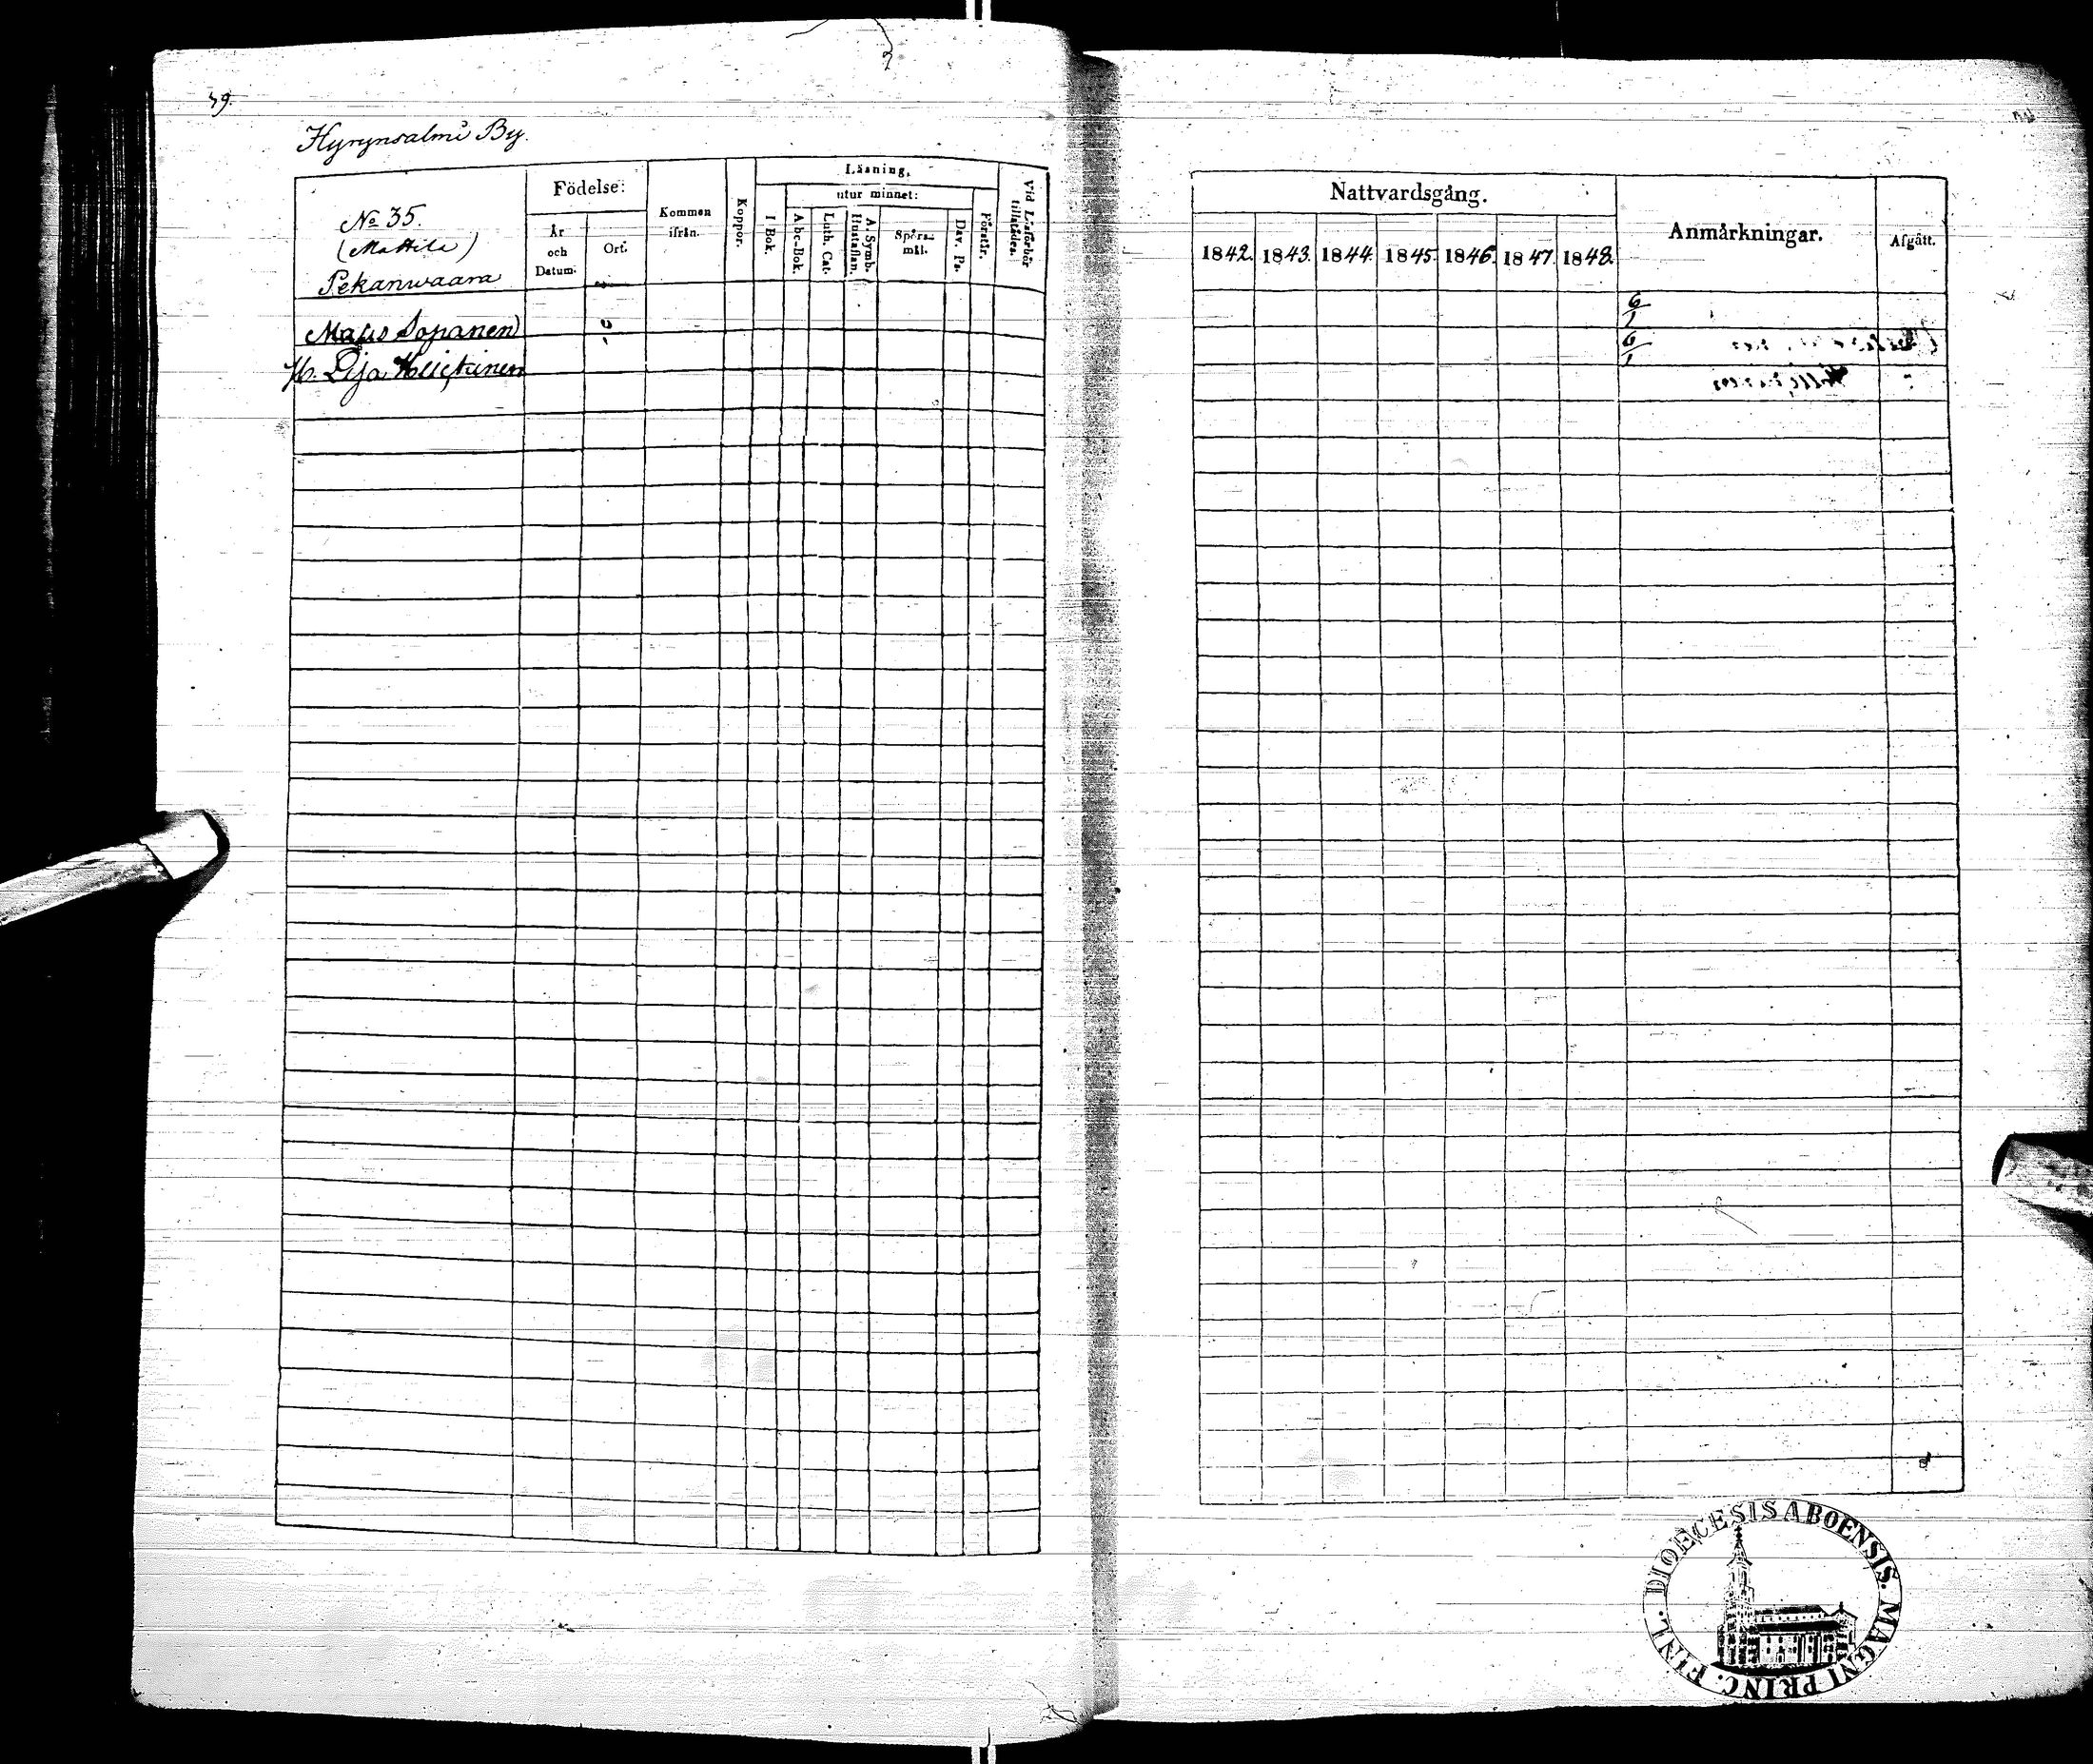 49.
Hyrynsalmi By.
No 35.
(Mattila)
Pekanwaara
Födelse:
År och Datum:
Ort.
Kommen ifrån.
Koppor.
Läsning.
utur minnet:
I Bok.
Abc-Bok.
Luth. Cat.
A. Symb. Hustaflan.
Spörs-mål.
Dav. Ps.
Förstår.
Vid Läseförhör tillstädes.
Mats Sopanen
H. Lisa Heikkinen
Nattvardsgång.
1842. 1843. 1844. 1845. 1846. 1847. 1848.
Anmärkningar.
Afgått.
6/1
6/1
DIOECESIS ABOENSIS. MAGNI PRINC. FINL.